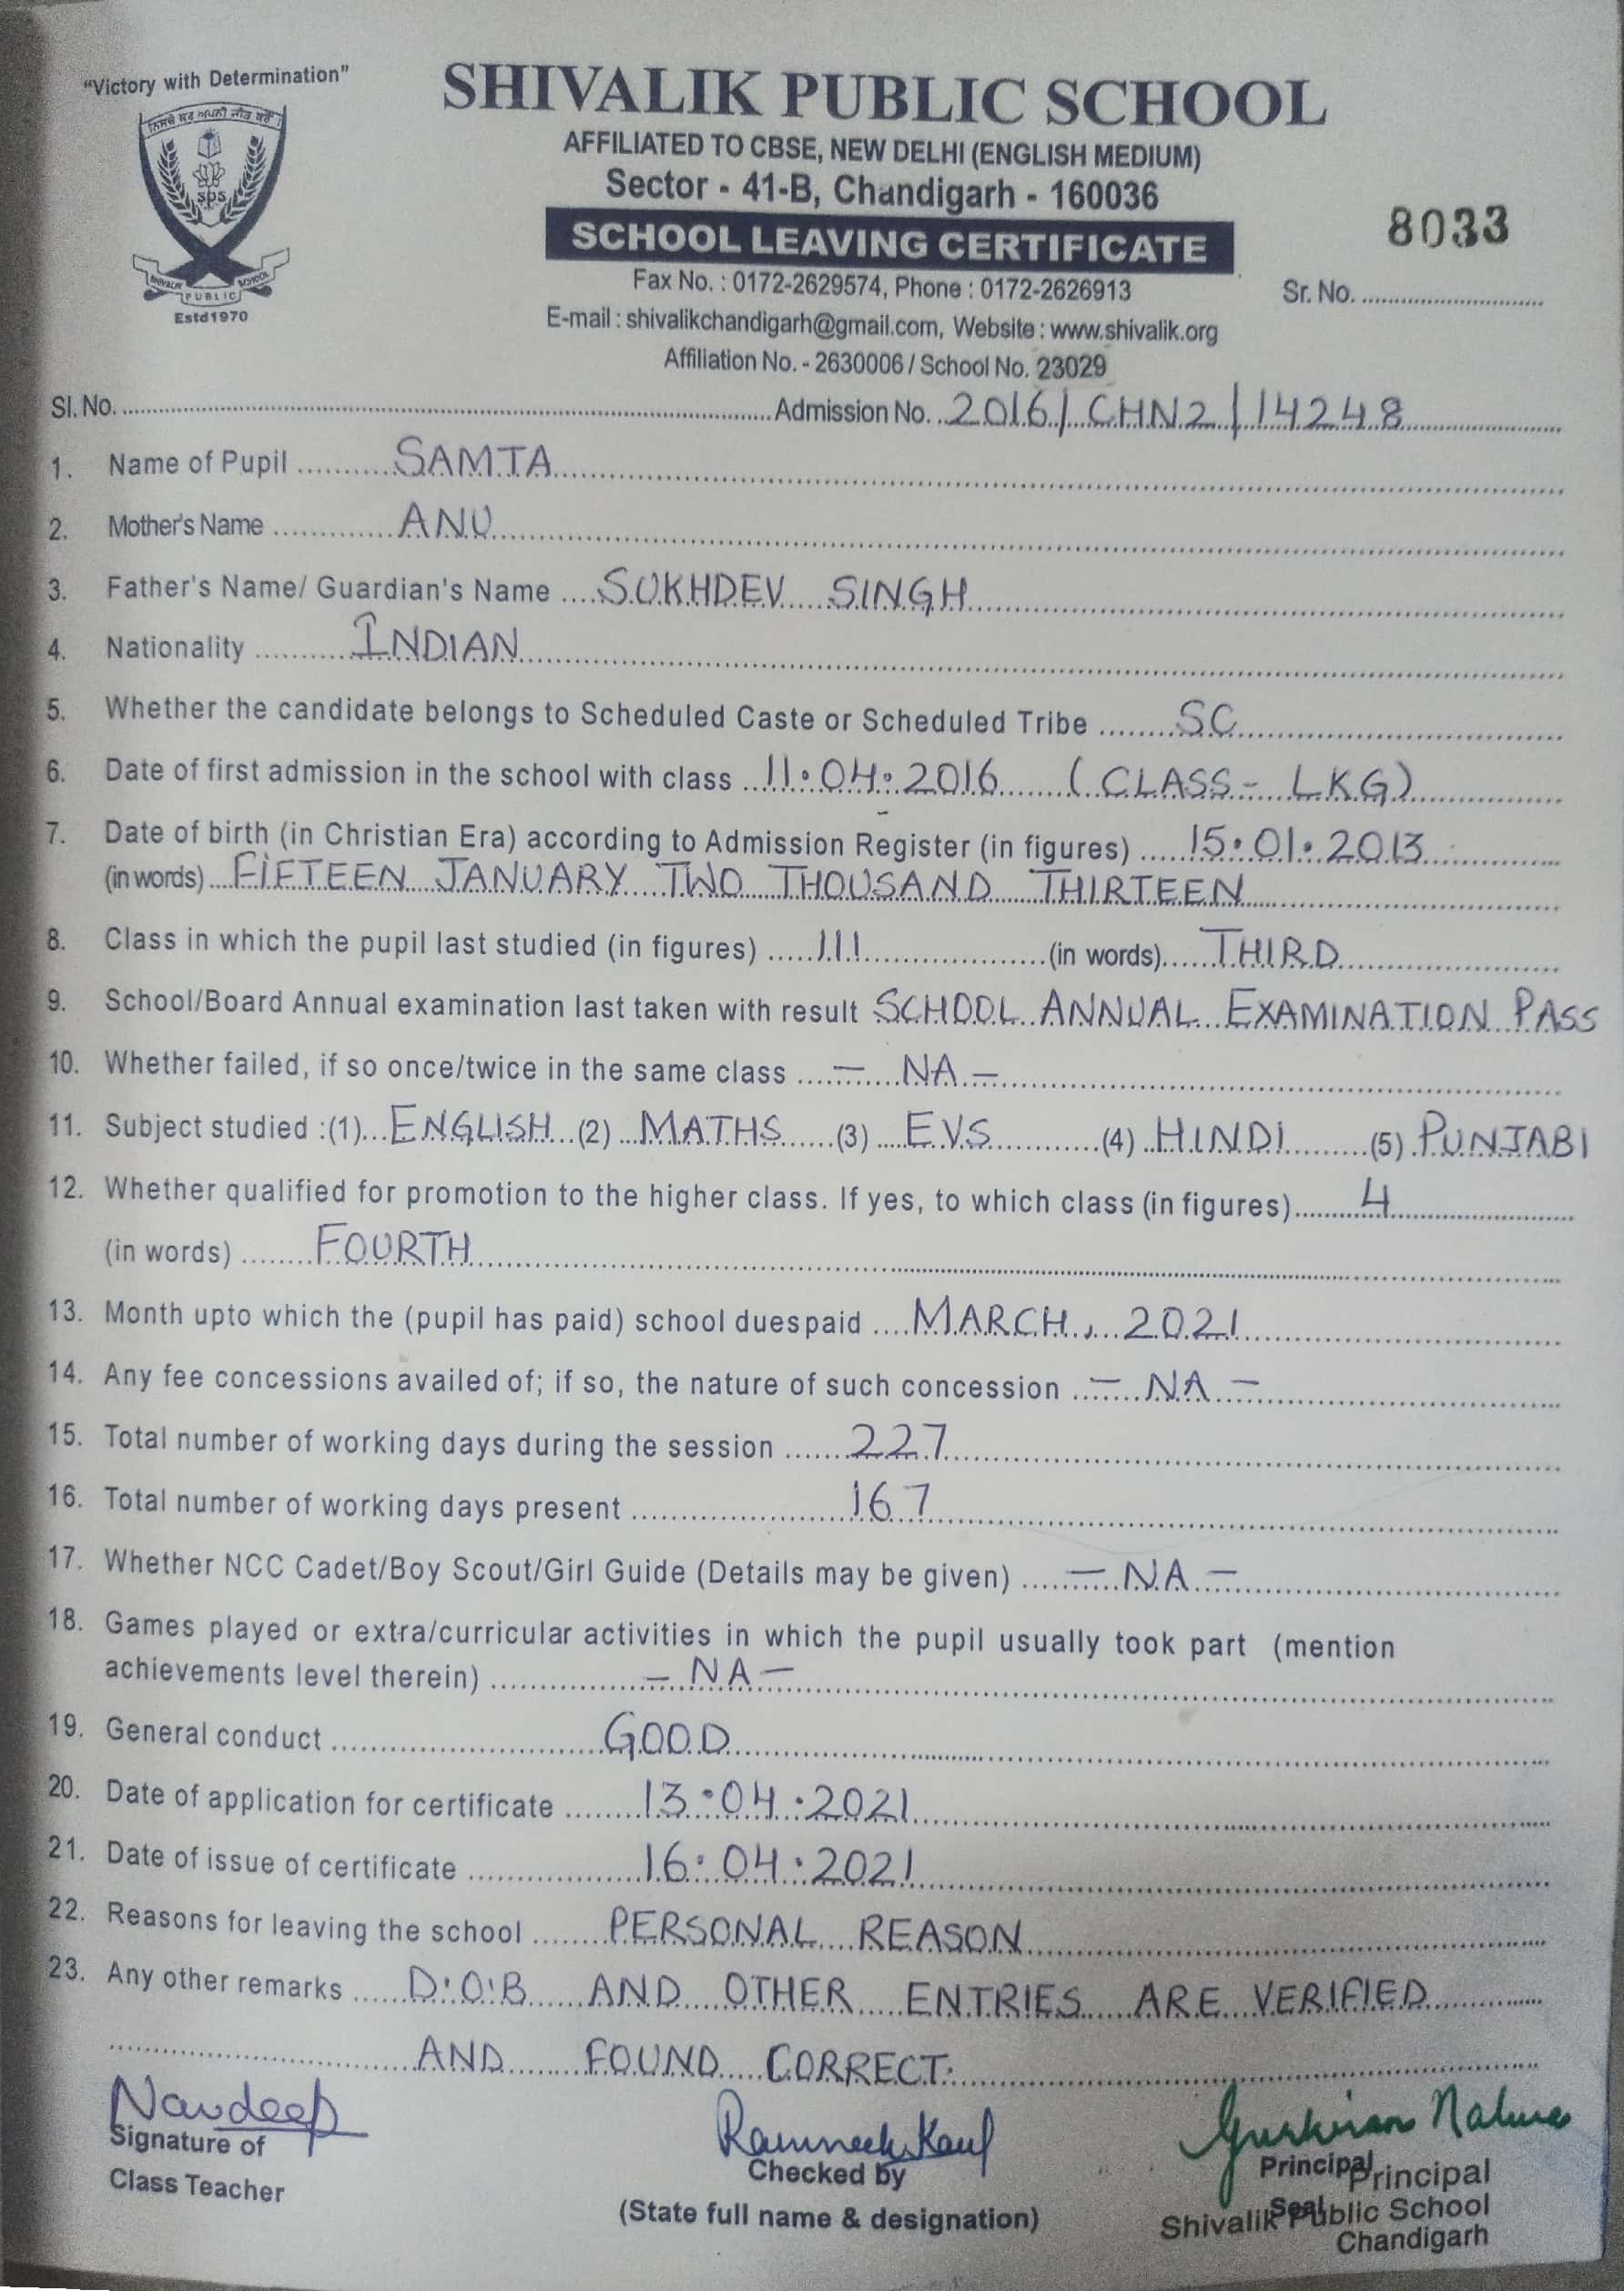 "Victory with Determination"
SHIVALIK PUBLIC SCHOOL
AFFILIATED TO CBSE, NEW DELHI (ENGLISH MEDIUM)
Sector - 41-B, Chandigarh - 160036
SCHOOL LEAVING CERTIFICATE
8033
Fax No. : 0172-2629574, Phone : 0172-2626913
Sr. No.
E-mail : shivalikchandigarh@gmail.com, Website : www.shivalik.org
Affiliation No. - 2630006 / School No. 23029
sps
SHIVALIK PUBLIC SCHOOL
Estd1970
Sl. No. Admission No. 2016/CHN2/14248
1. Name of Pupil SAMTA
2. Mother's Name ANU
3. Father's Name/ Guardian's Name SUKHDEV SINGH
4. Nationality INDIAN
5. Whether the candidate belongs to Scheduled Caste or Scheduled Tribe SC
6. Date of first admission in the school with class 11.04.2016 (CLASS - LKG)
7. Date of birth (in Christian Era) according to Admission Register (in figures) 15.01.2013
(in words) FIFTEEN JANUARY TWO THOUSAND THIRTEEN
8. Class in which the pupil last studied (in figures) III (in words) THIRD
9. School/Board Annual examination last taken with result SCHOOL ANNUAL EXAMINATION PASS
10. Whether failed, if so once/twice in the same class — NA —
11. Subject studied :(1) ENGLISH (2) MATHS (3) EVS (4) HINDI (5) PUNJABI
12. Whether qualified for promotion to the higher class. If yes, to which class (in figures) 4
(in words) FOURTH
13. Month upto which the (pupil has paid) school duespaid MARCH, 2021
14. Any fee concessions availed of; if so, the nature of such concession — NA —
15. Total number of working days during the session 227
16. Total number of working days present 167
17. Whether NCC Cadet/Boy Scout/Girl Guide (Details may be given) — NA —
18. Games played or extra/curricular activities in which the pupil usually took part (mention
achievements level therein) — NA —
19. General conduct GOOD
20. Date of application for certificate 13.04.2021
21. Date of issue of certificate 16.04.2021
22. Reasons for leaving the school PERSONAL REASON
23. Any other remarks D.O.B AND OTHER ENTRIES ARE VERIFIED
AND FOUND CORRECT.
Navdeep
Signature of
Class Teacher
Ramneek Kaul
Checked by
(State full name & designation)
Gurkiran
Principal
Seal
Principal
Shivalik Public School
Chandigarh